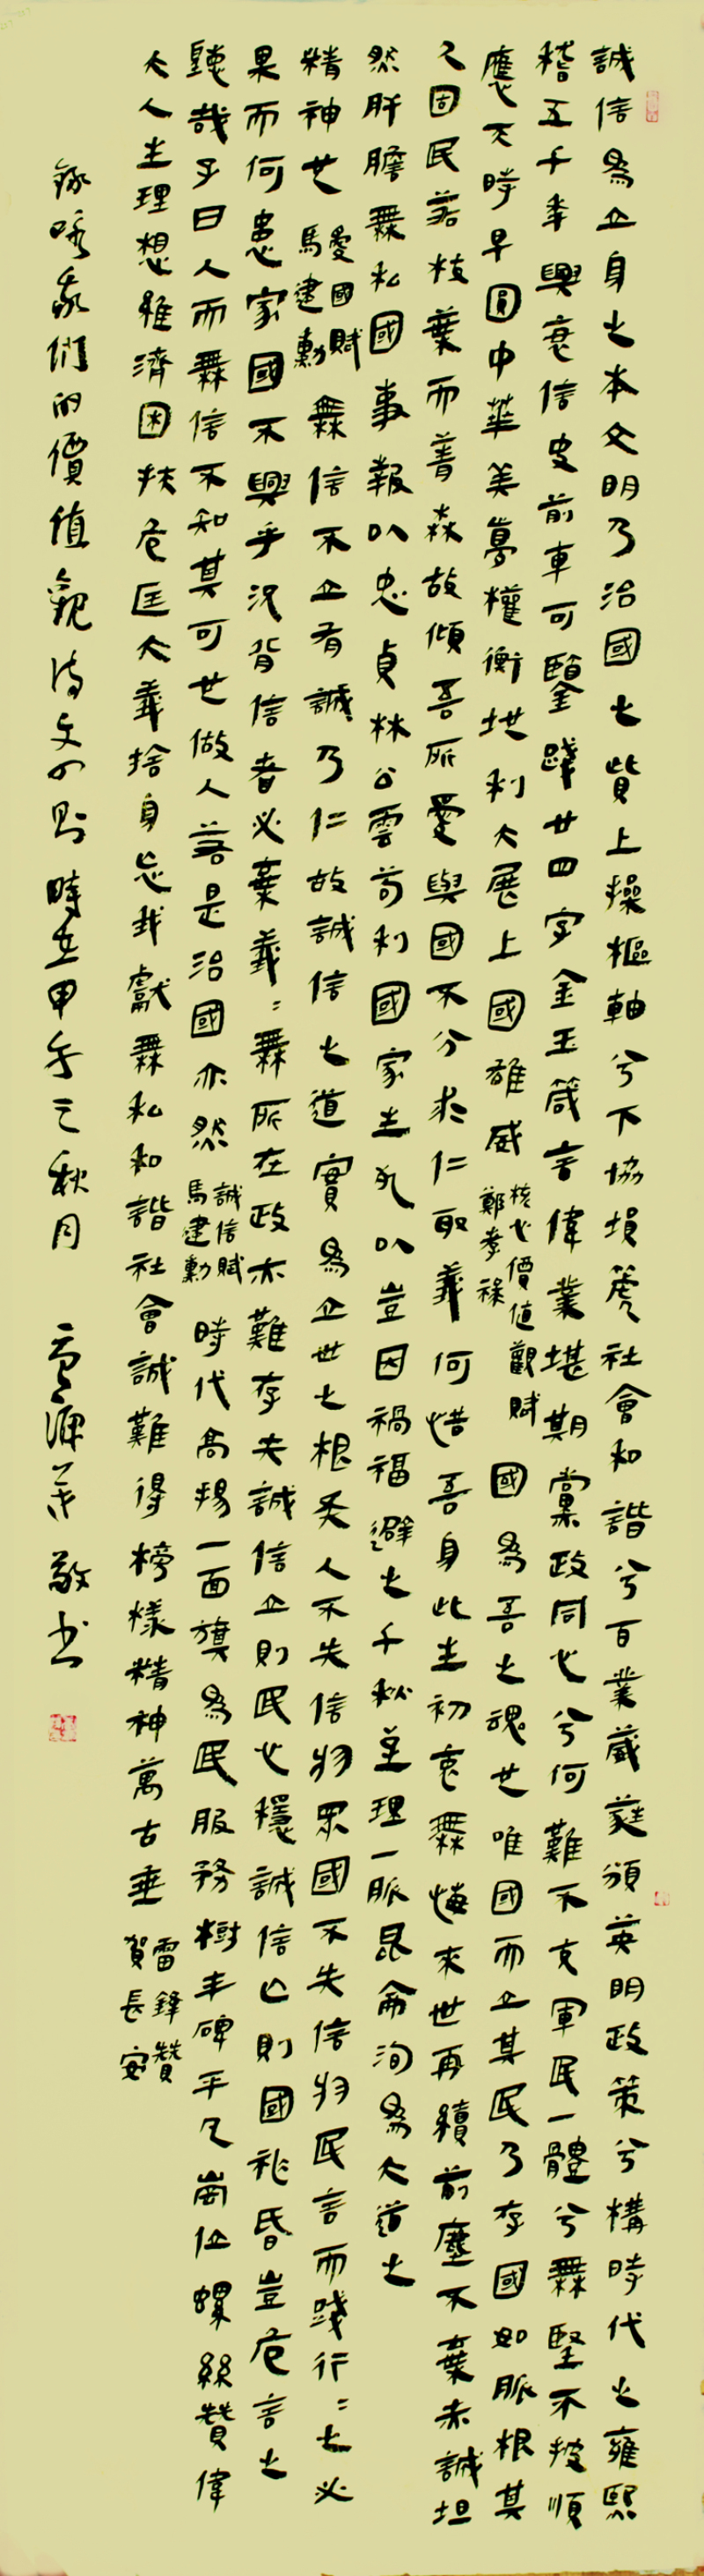 誠信為立身之本文明乃治國之貲上操樞軸兮下協塤篪社會和諧兮百業葳蕤頒英明政策兮構時代之雍熙
稽五千年興衰信史前車可鑒踐廿四字金玉箴言偉業堪期黨政同心兮何難不克軍民一體兮無堅不披順
應天時早圓中華美夢權衡地利大展上國雄威 核心價值觀賦 鄭孝祿 國為吾之魂也唯國而立其民乃存國如脈根其
之固民若枝葉而菁森故傾吾所愛與國不分求仁取義何惜吾身此生初衷無悔來世再續前塵不棄赤誠坦
然肝膽無私國事報以忠貞林公雲苟利國家生死以豈因禍福避之千秋至理一脈昆侖洵為大道之
精神也 愛國賦 馬建勳 無信不立有誠乃仁故誠信之道實為立世之根炙人不失信將眾國不失信將民言而踐行:之必
果而何患家國不興乎況背信者必棄義:無所在政亦難存夫誠信立則民心穩誠信亡則國祚昏豈危言之
聽哉子曰人而無信不知其可也做人若是治國亦然 誠信賦 馬建勳 時代高揚一面旗為民服務樹丰碑平凡崗位螺絲贊偉
大人生理想雖濟困扶危匡大義捨身忘我獻無私和諧社會誠難得榜樣精神萬古垂 雷鋒贊 賀長安
錄唱我們的價值觀詩文四則時在甲午之秋月 敬书